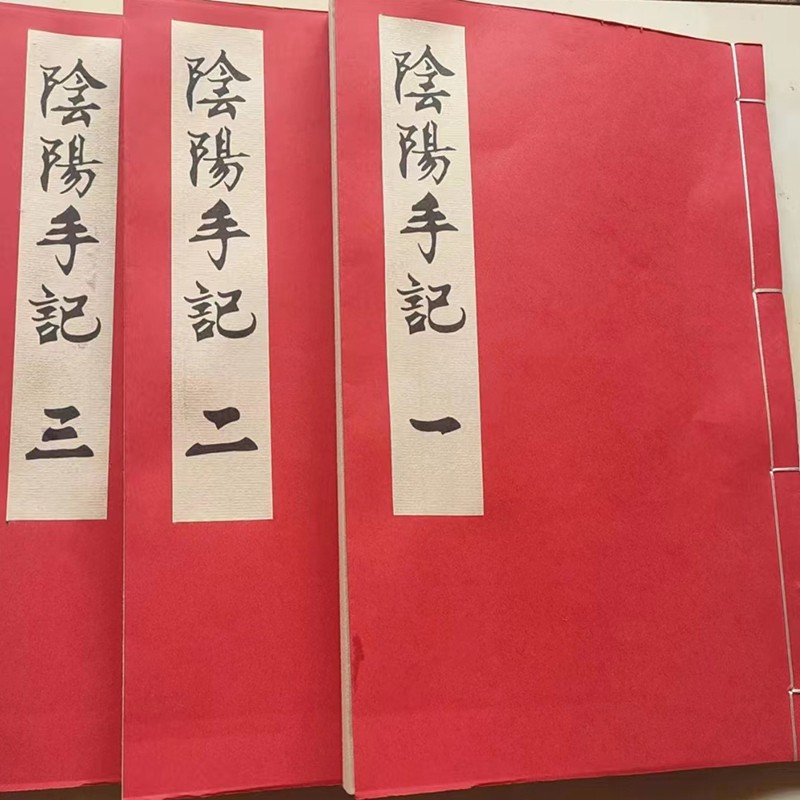 陰陽手記 一
陰陽手記 二
陰陽手記 三